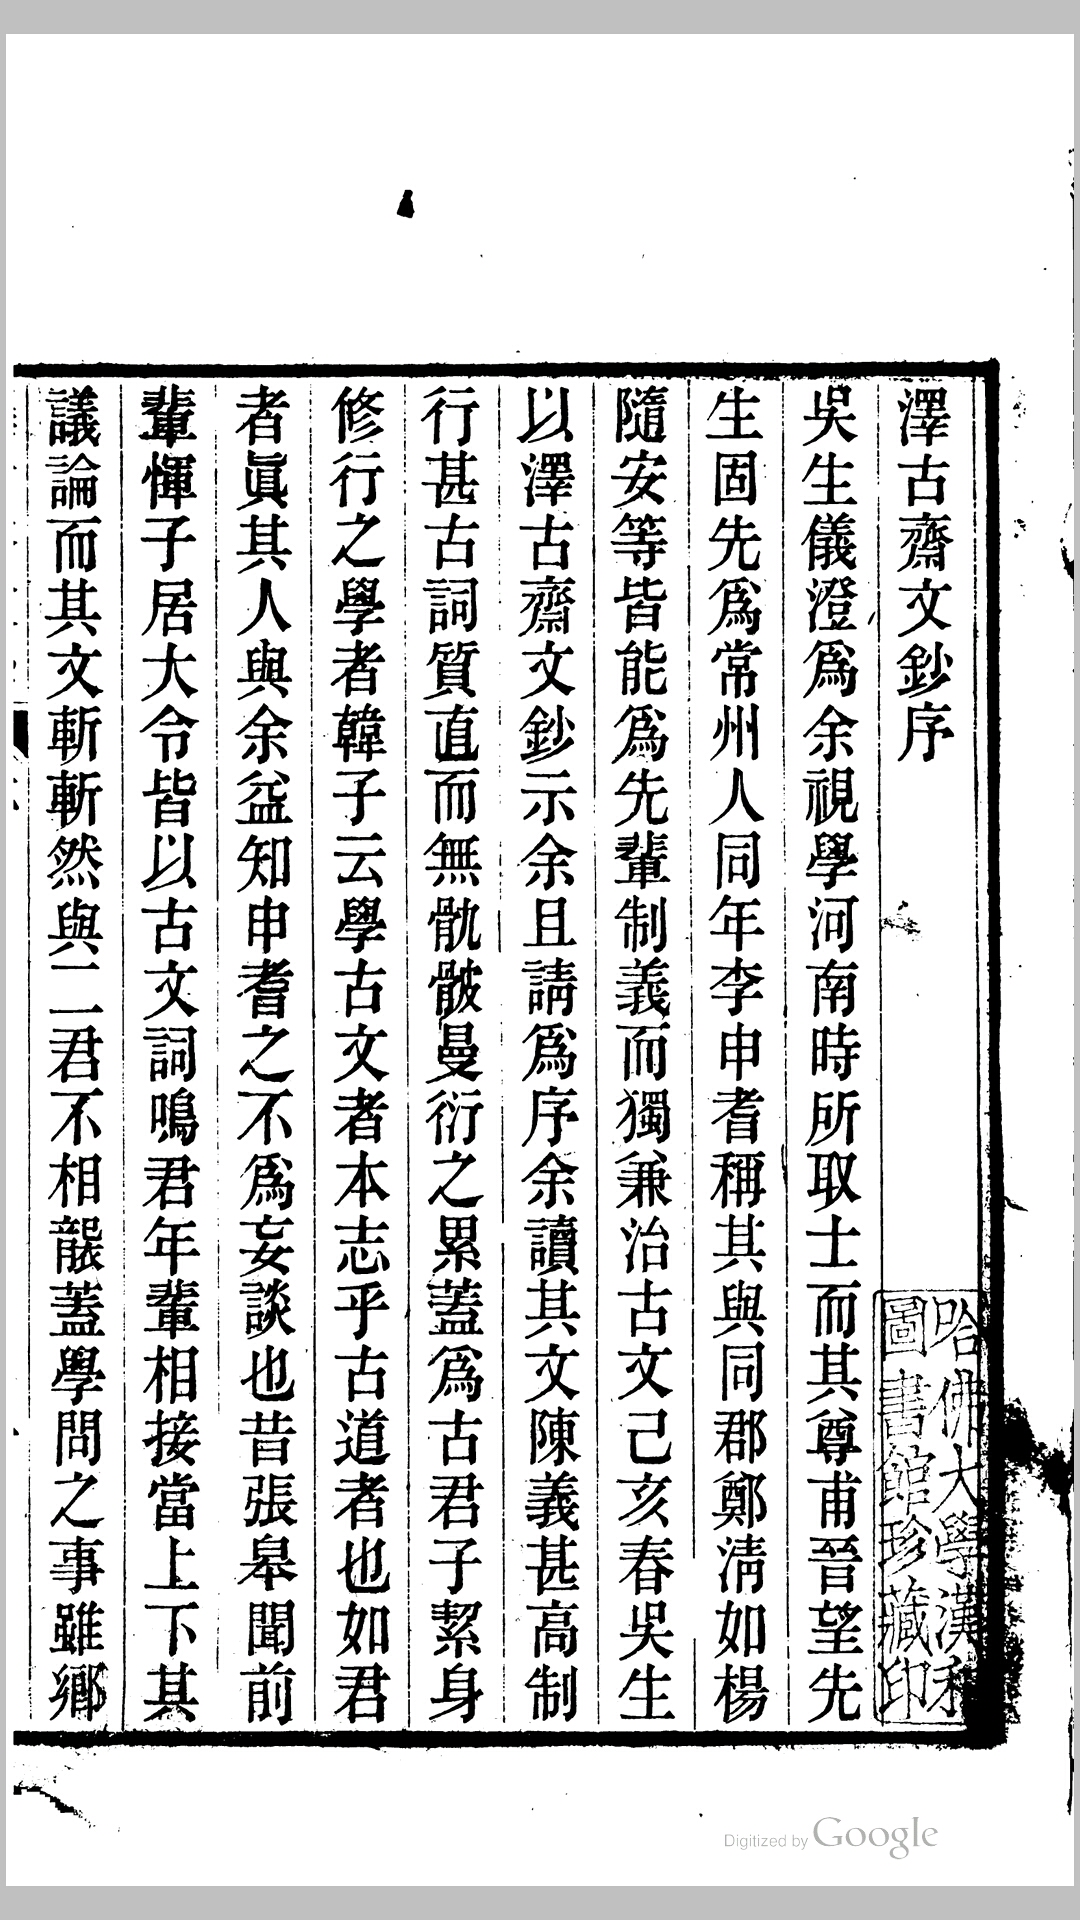 澤古齋文鈔序
吳生儀澄爲余視學河南時所取士而其尊甫晉望先
生固先爲常州人同年李申耆稱其與同郡鄭清如楊
隨安等皆能爲先輩制義而獨兼治古文己亥春吳生
以澤古齋文鈔示余且請爲序余讀其文陳義甚高制
行甚古詞質直而無骩骳曼衍之累蓋爲古君子絜身
修行之學者韓子云學古文者本志乎古道者也如君
者眞其人與余益知申耆之不爲妄談也昔張皋聞前
輩惲子居大令皆以古文詞鳴君年輩相接當上下其
議論而其文斬斬然與二君不相襲蓋學問之事雖鄉
哈佛大學漢和
圖書館珍藏印
Digitized by Google